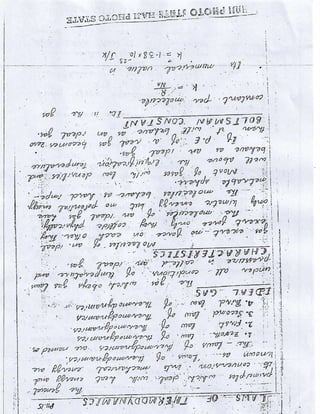 HAJI PHOTO STATE HAJI PHOTO STATE
LAWS OF THERMODYNAMICS
principles which deal with heat energy and
its conversion into mechanical energy are
known as Laws of thermodynamics.
The laws of thermodynamics are named as
1. Zeroth law of thermodynamics
2. First law of thermodynamics
3. Second law of thermodynamics
4. Third law of thermodynamics
IDEAL GAS
The gas which obeys gas law
under all conditions of temperature and
pressure is called an ideal gas
CHARACTERISTICS
Molecules of an ideal
gas exert no force on each other. They
exert force only they collide physically
The molecules of an ideal gas have
only kinetic energy but no potential energy
The molecules behave as hard
sphere.
Most of gases with low densities and
well above the temperature
behave as an ideal gas
If P.E of a real gas becomes zero
then it will behave as an ideal gas.
BOLTSMAN CONSTANT
It is the gas
constant per molecule
K = R/NA
Its numerical value is
K = 1.38×10⁻²³ J/k